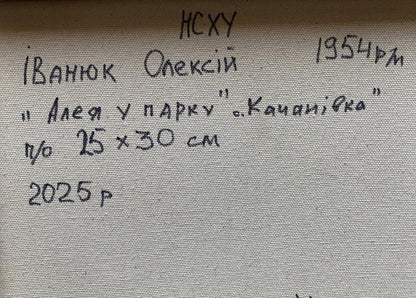 НСХУ
Іванюк Олексій 1954 р/н
"Алея у парку" „Качанівка"
п/о 25 x 30 см
2025 р